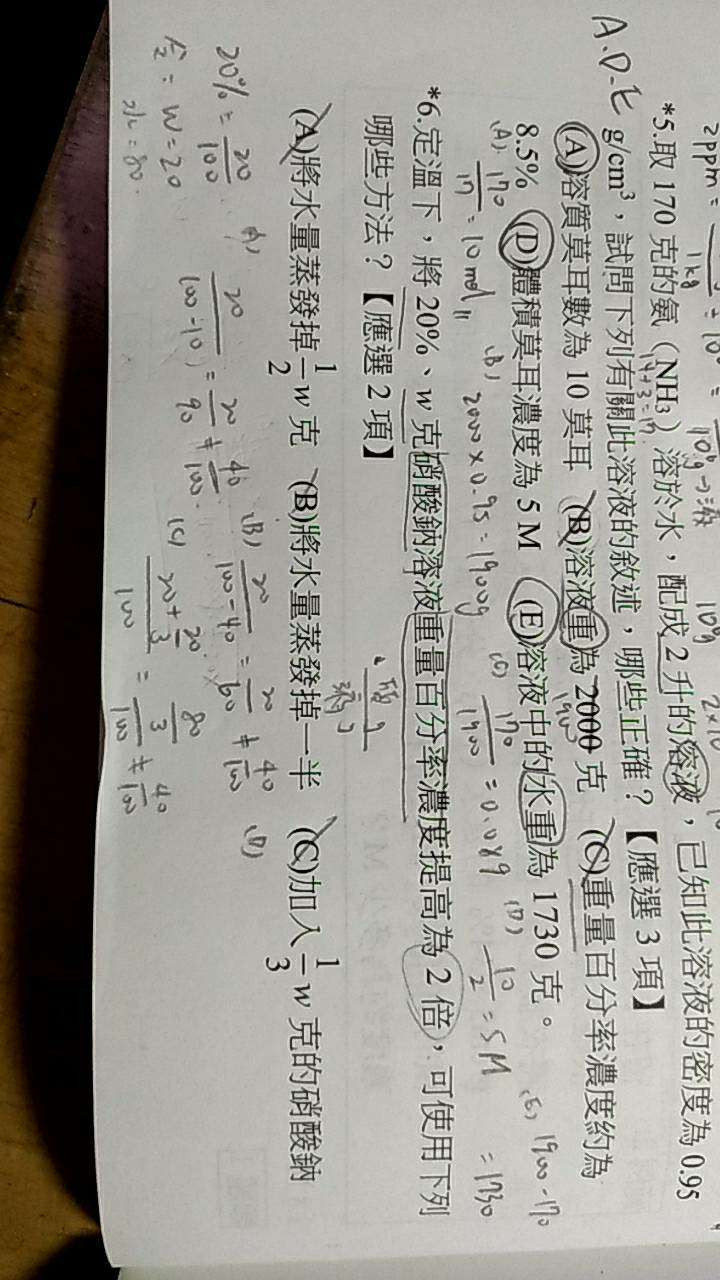 2ppm =
1kg
10⁶g→液
10⁶g
*5.取 170 克的氨（NH₃）溶於水，配成 2 升的溶液，已知此溶液的密度為 0.95
14+3=17
A.D.E g/cm³，試問下列有關此溶液的敘述，哪些正確？【應選 3 項】
(A)溶質莫耳數為 10 莫耳 (B)溶液重為 2000 克 (C)重量百分率濃度約為
1900
8.5% (D)體積莫耳濃度為 5 M (E)溶液中的水重為 1730 克。
(A) 170/17 = 10 mol (B) 2000×0.95=1900g (C) 170/1900 = 0.089 (D) 10/2 = 5M (E) 1900-170
=1730
*6.定溫下，將 20%、w 克硝酸鈉溶液重量百分率濃度提高為 2 倍，可使用下列
哪些方法？【應選 2 項】
(A)將水量蒸發掉 1/2 w 克 (B)將水量蒸發掉一半 (C)加入 1/3 w 克的硝酸鈉
20% = 20/100 (A) 20/(100-10) = 20/90 ≠ 40/100 (B) 20/(100-40) = 20/60 ≠ 40/100 (D)
= W = 20 (C) (20+20/3)/100 = (80/3)/100 ≠ 40/100
水=80